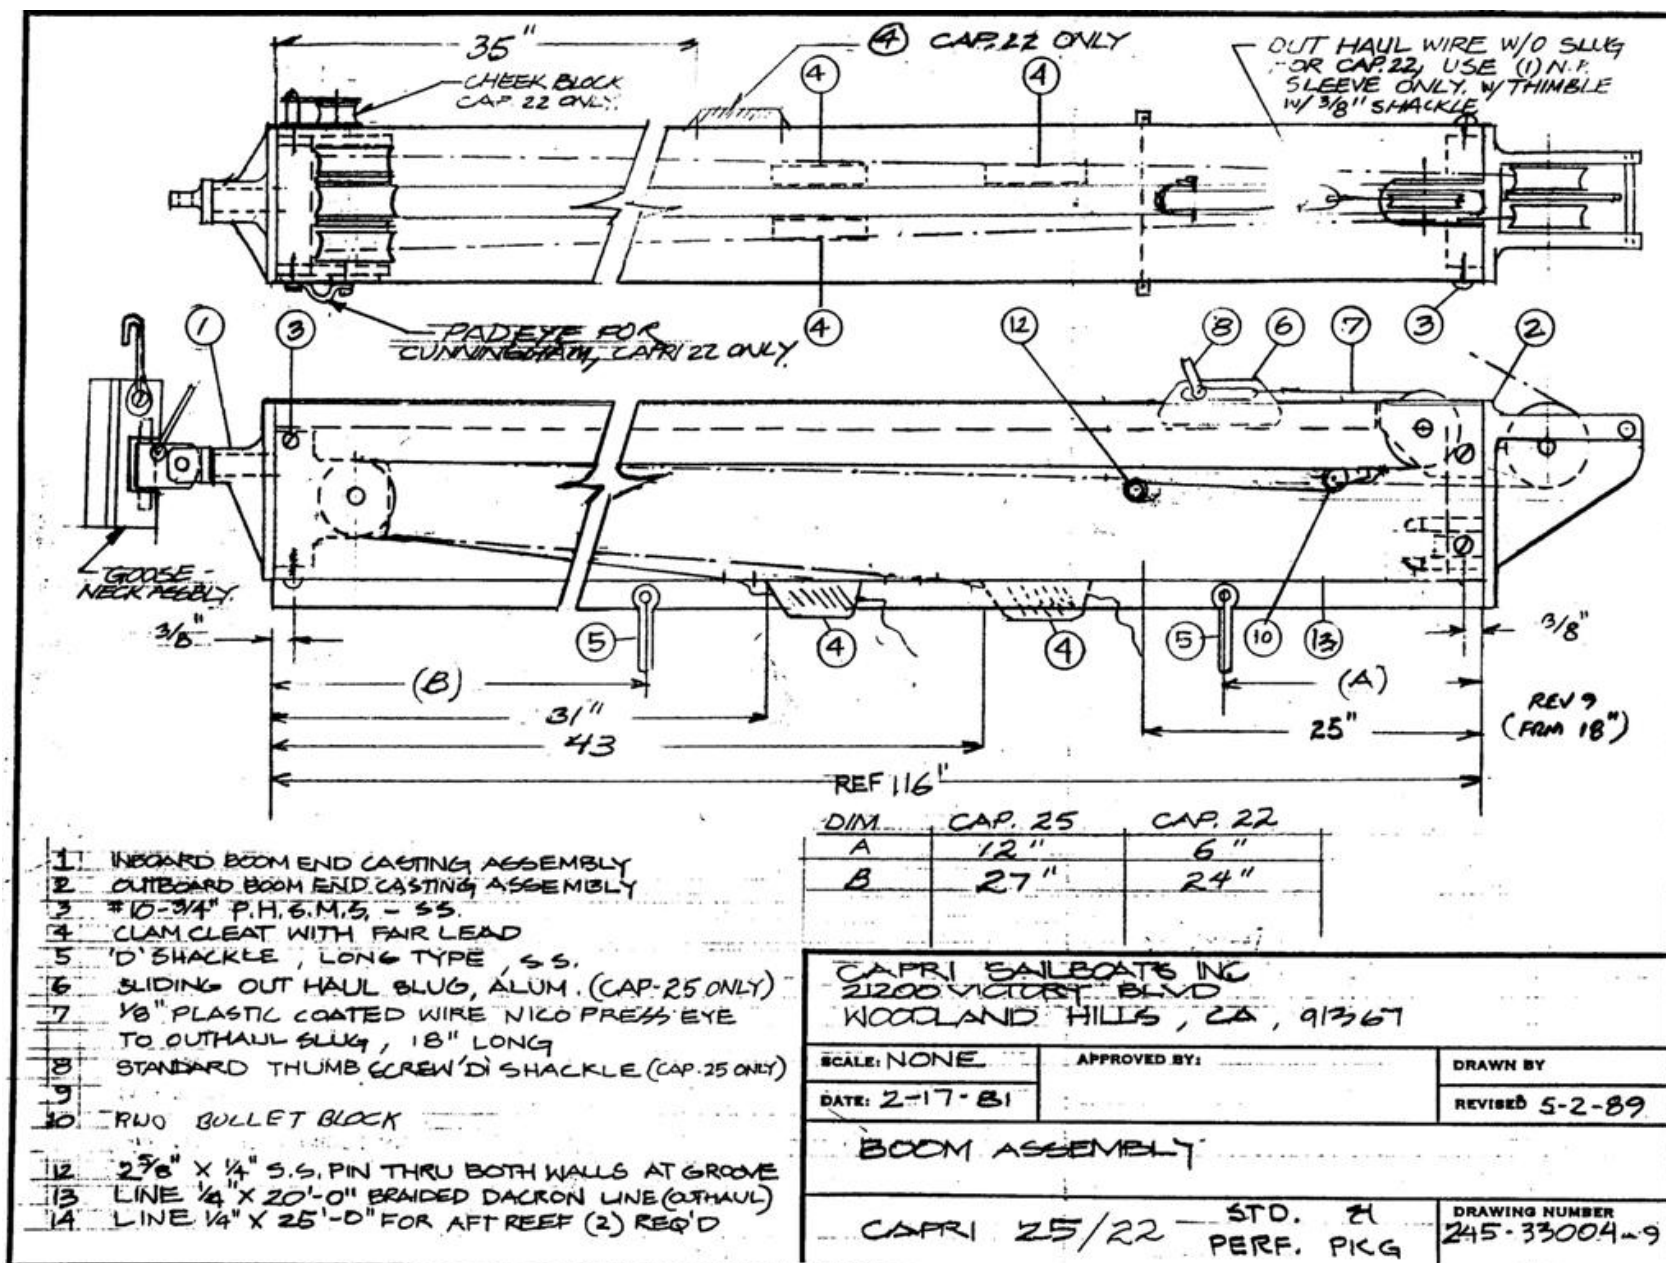 35"
④ CAP. 22 ONLY
CHEEK BLOCK
CAP. 22 ONLY.
OUT HAUL WIRE W/O SLUG
FOR CAP. 22, USE (1) N.P.
SLEEVE ONLY, W/ THIMBLE
W/ 3/8" SHACKLE
4 4
4
PADEYE FOR
CUNNINGHAM, CAPRI 22 ONLY.
1 3 12 8 6 7 3 2
GOOSE-
NECK ASSBLY.
3/8"
5 4 4 5 10 13
3/8"
(B) (A)
31"
25"
REV 9
(FRM 18")
43
REF 116"
DIM CAP. 25 CAP. 22
A 12" 6"
B 27" 24"
1 INBOARD BOOM END CASTING ASSEMBLY
2 OUTBOARD BOOM END CASTING ASSEMBLY
3 #10-3/4" P.H.S.M.S. - SS.
4 CLAM CLEAT WITH FAIR LEAD
5 'D' SHACKLE, LONG TYPE, S.S.
6 SLIDING OUT HAUL SLUG, ALUM. (CAP-25 ONLY)
7 1/8" PLASTIC COATED WIRE NICO PRESS EYE
TO OUTHAUL SLUG, 18" LONG
8 STANDARD THUMB SCREW 'D' SHACKLE (CAP. 25 ONLY)
9
10 RWO BULLET BLOCK
12 2 5/8" X 1/4" S.S. PIN THRU BOTH WALLS AT GROOVE
13 LINE 1/4" X 20'-0" BRAIDED DACRON LINE (OUTHAUL)
14 LINE 1/4" X 25'-0" FOR AFT REEF (2) REQ'D
CAPRI SAILBOATS INC
21200 VICTORY BLVD
WOODLAND HILLS, CA, 91367
SCALE: NONE
APPROVED BY:
DRAWN BY
DATE: 2-17-81
REVISED 5-2-89
BOOM ASSEMBLY
CAPRI 25/22 STD. &
PERF. PKG
DRAWING NUMBER
245-33004-9